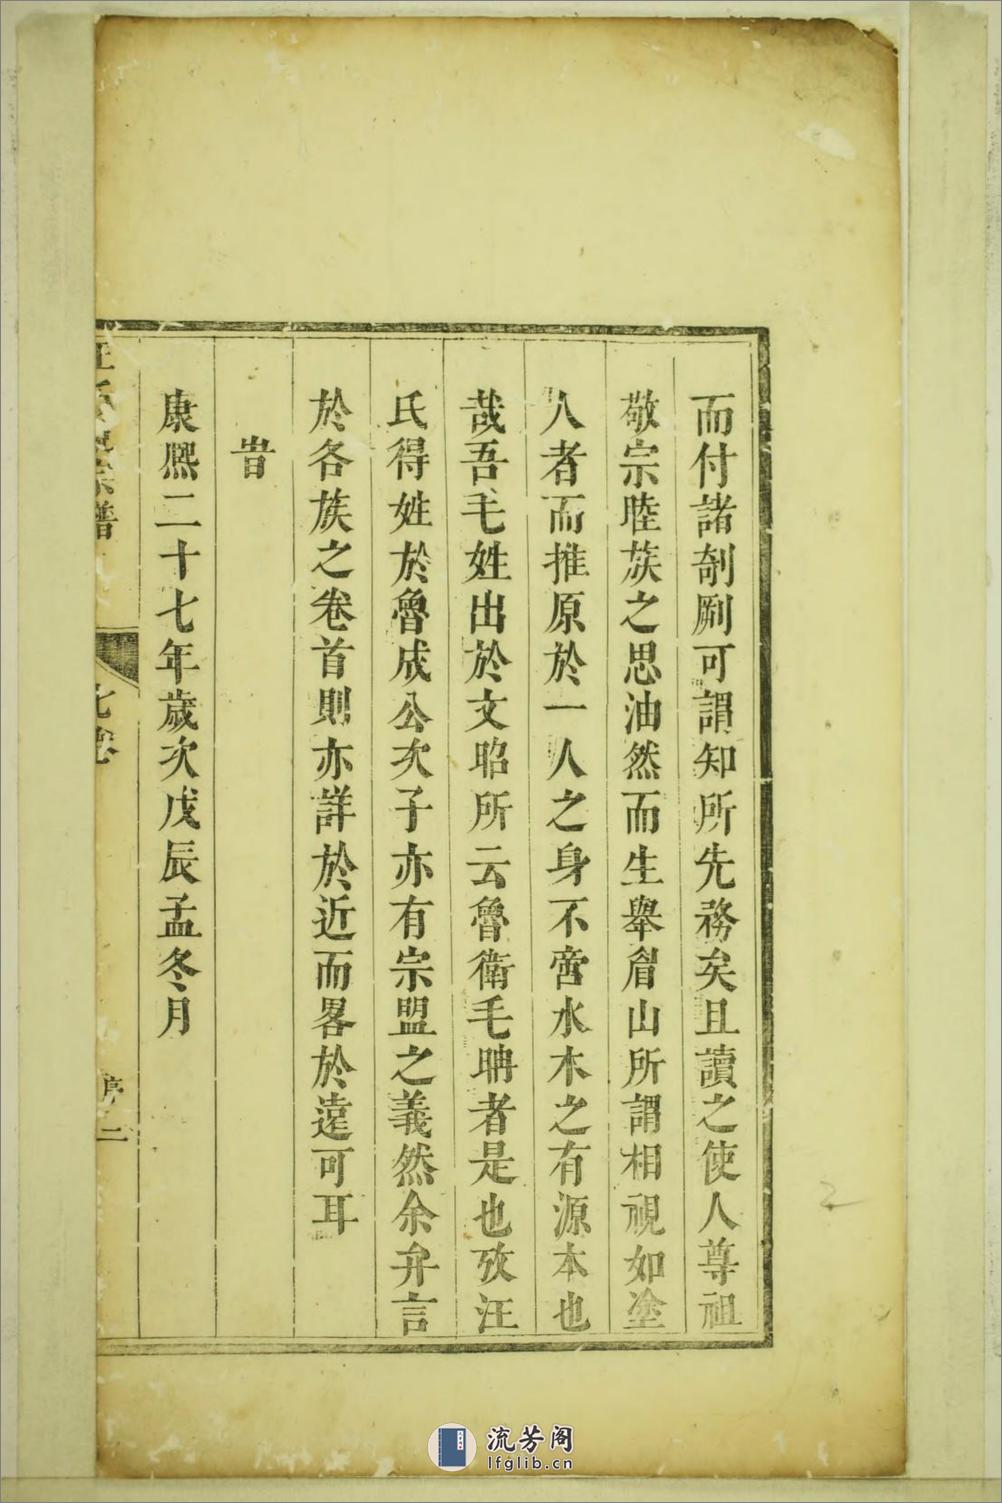 而付諸剞劂可謂知所先務矣且讀之使人尊祖
敬宗睦族之思油然而生舉眉山所謂相視如塗
人者而推原於一人之身不啻水木之有源本也
哉吾毛姓出於文昭所云魯衛毛聃者是也攷汪
氏得姓於魯成公次子亦有宗盟之義然余弁言
於各族之卷首則亦詳於近而畧於遠可耳
旹
康熙二十七年歲次戊辰孟冬月
宗譜
序
二
2
流芳阁
lfglib.cn